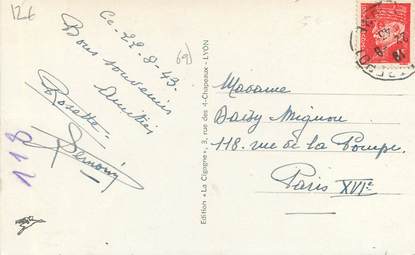 126
Ce 22-8-43.
Bons souvenirs
Amitiés
Rosette
118
Edition "La Cigogne", 3, rue des 4-Chapeaux - LYON
Madame
Daisy Mignon
118 rue de la Pompe
Paris XVIe